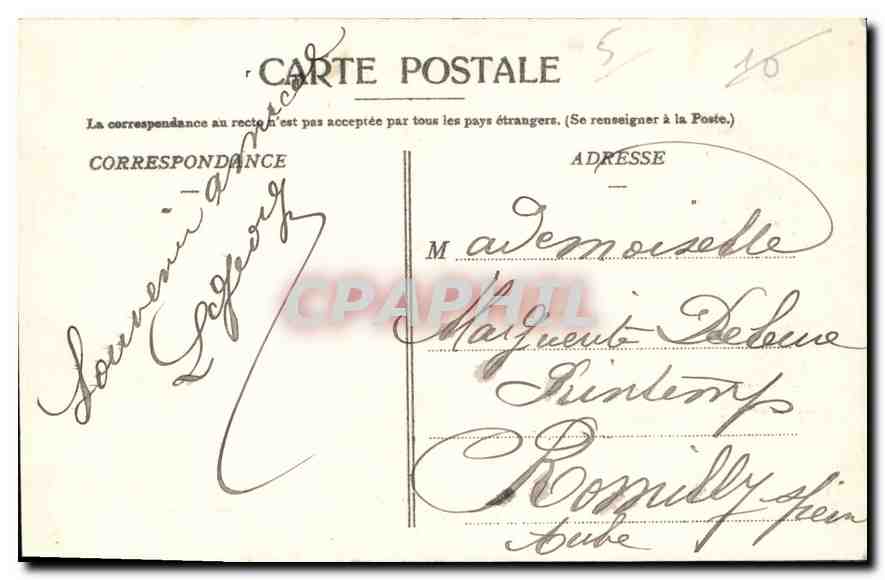 5
10
CARTE POSTALE
La correspondance au recto n'est pas acceptée par tous les pays étrangers. (Se renseigner à la Poste.)
CORRESPONDANCE
Souvenir amical
L Georg
ADRESSE
Mademoiselle
Marguerite
Printemps
Romilly s/ Seine
Aube
CPAPHIL